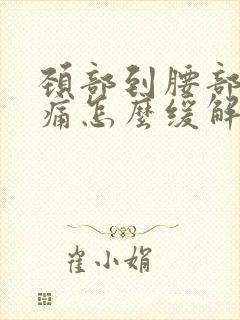 頸部到腰部
痛怎麼緩解
崔小娟